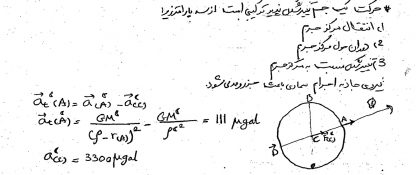 * حرکت یک جسم تغییر شکل پذیر ترکیبی است از سه پارامتر زیر:
1) انتقال مرکز جرم
2) دوران حول مرکز جرم
3) تغییر شکل نسبت به مرکز جرم
نیروی جاذبه اجرام سماوی باعث جزر و مد می شود
a⃗t(A) = a⃗(A) - a⃗(c)
a⃗t(A) = GM / (ρ - r(A))² - GM / ρ² = 111 μgal
a(c) = 3300 μgal
B
A
C
D